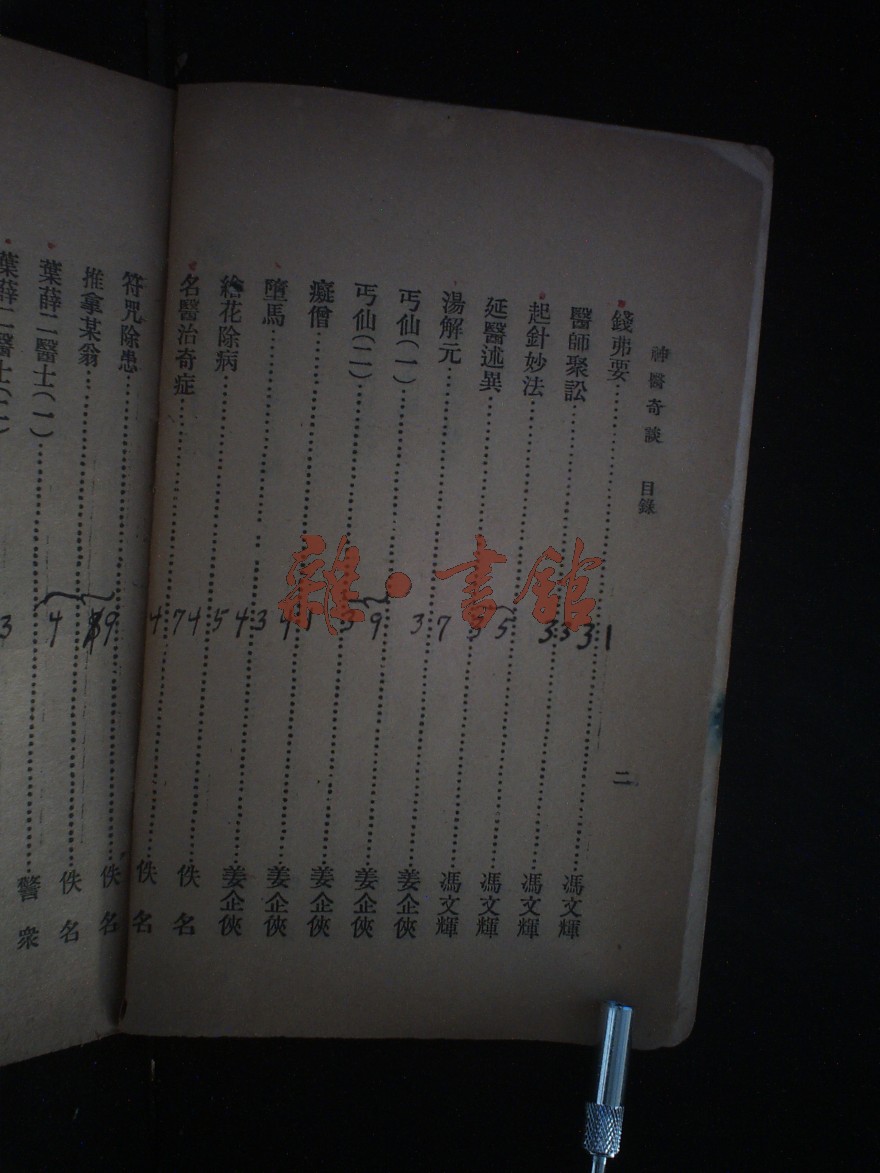 神醫奇談 目錄 二
錢弗要……馮文輝
醫師聚訟……馮文輝
起針妙法……馮文輝
延醫述異……馮文輝
湯解元……姜企俠
丐仙(一)……姜企俠
丐仙(二)……姜企俠
癡僧……姜企俠
墮馬……姜企俠
繪花除病……佚名
名醫治奇症……佚名
符咒除患……佚名
推拿某翁……佚名
葉薛二醫士(一)……警衆
葉薛二醫士(二)
雜·書館